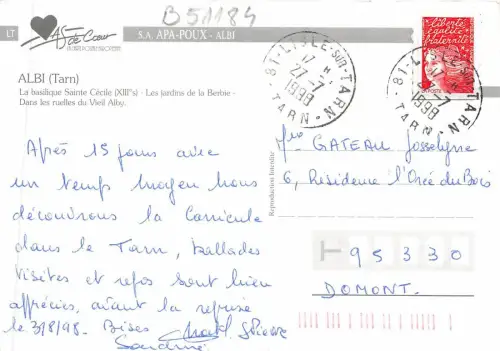 B51184
LT
AS de Cœur
S.A. APA-POUX - ALBI
liberté
égalité
fraternité
LA POSTE
81-LISLE-SUR-TARN
17 H
27-7
1998
TARN
81-LISLE-SUR-TARN
27-7
1998
TARN
ALBI (Tarn)
La basilique Sainte Cécile (XIII°s) - Les jardins de la Berbie -
Dans les ruelles du Vieil Alby.
Après 15 jours avec
un temps moyen nous
découvrons la Canicule
dans le Tarn, ballades
visites et repos sont bien
appréciés, avant la reprise
le 3/8/98. Bises
Sandrine
Reproduction Interdite
GATEAU Josselyne
6, Résidence l'Orée du Bois
95330
DOMONT.